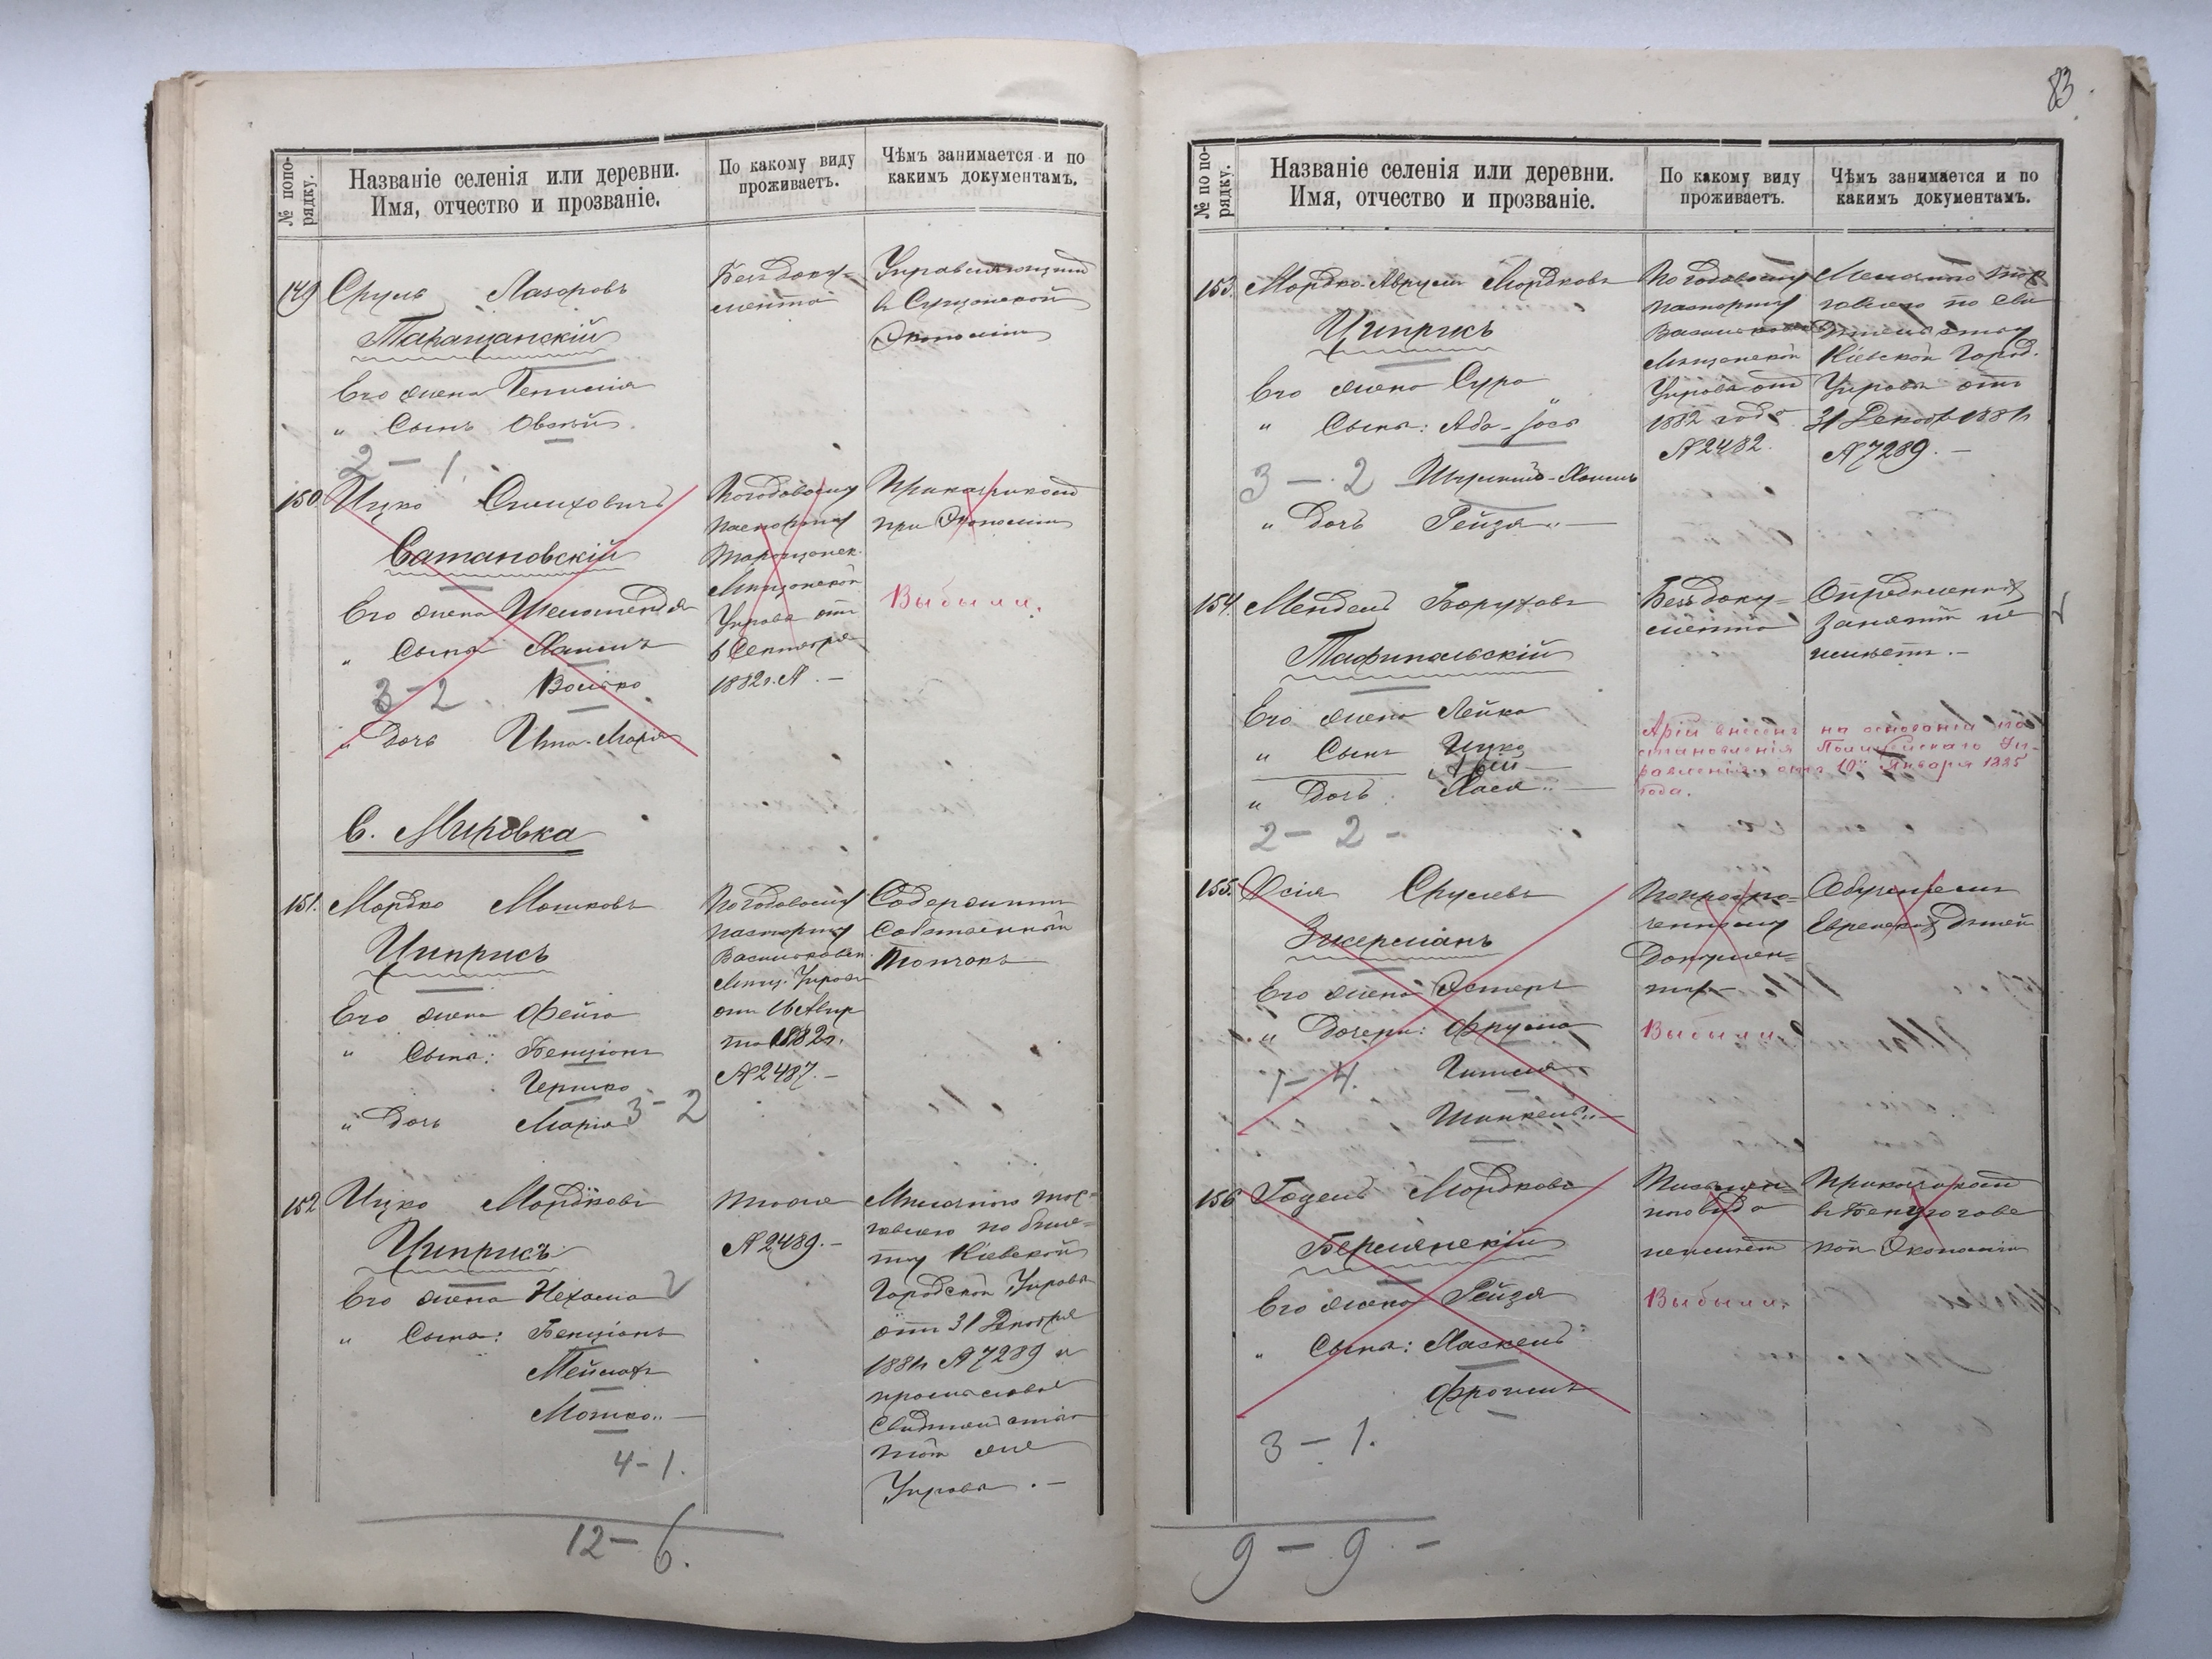 № по по-
рядку.
Названіе селенія или деревни.
Имя, отчество и прозваніе.
По какому виду
проживаетъ.
Чѣмъ занимается и по
какимъ документамъ.
149 Сруль Лазоровъ
Таращанскій
Его жена
" Сынъ Овсѣй
2 – 1.
Безъ доку-
мента
Управляющій
Экономіи
150 Ицко
Сатановскій
Его жена
" Сына
Волько
3 – 2
" Дочь Ита-Марія
По годовому
паспорту
Таращанск.
Мѣщанской
Управы отъ
6 Сентября
1882 г. № . –
Прикащикомъ
при Экономіи
Выбыли.
С. Мировка
151. Мордко Мошковъ
Циприсъ
Его жена Фейга
" Сына: Бенціонъ
Гершко
" Дочь Марія 3 – 2
По годовому
паспорту
Васильковск.
Мѣщ. Управы
отъ 16
1882 г.
№ 2487. –
Содержитъ
Собственный
152 Ицко Мордковъ
Циприсъ
Его жена Нехама
" Сына: Бенціонъ
Мошко.. –
4 – 1.
тоже
№ 2489. –
Мѣлочною тор-
говлею по биле-
ту Кіевской
Городской Управы
отъ 31 Декабря
1881 г. № 7289 и
Свидѣтельство
той же
Управы . –
12 – 6.
83
№ по по-
рядку.
Названіе селенія или деревни.
Имя, отчество и прозваніе.
По какому виду
проживаетъ.
Чѣмъ занимается и по
какимъ документамъ.
153. Мордко-Аврумъ Мордковъ
Циприсъ
Его жена Сура
" Сына: Аба-Іосъ
3 – 2
" Дочь Рейзя.. –
По годовому
паспорту
Васильковской
Мѣщанской
Управы отъ
1882 года
№ 2482.
Мелочною тор
говлею по сви
дѣтельству
Кіевской Город.
Управы отъ
31 Декабря 1881 г.
№ 7289. –
154. Мендель Боруховъ
Его жена Лейка
" Сынъ Ицко
Арій
" Дочь Хася.. –
2 – 2 –
Безъ доку-
мента
Опредѣленныхъ
занятій не
имѣетъ. –
Арій внесенъ на основаніи по
становленія Полицейскаго Уп-
равленія отъ 10 Января 1885
года.
155. Осія Срулевъ
Зикерманъ
Его жена Эстеръ
" Дочери: Фрума
1 – 4. Гитля
По просро-
ченному
Докумен-
ту –
Выбыли.
Обученіемъ
Еврейскихъ дѣтей
156 Мордковъ
Бермянскій
Его жена Рейзя
" Сына: Хаскель
Фроимъ
3 – 1.
Письмен-
наго вида
неимѣетъ
Выбыли.
Прикащикомъ
Экономіи
9 – 9. –